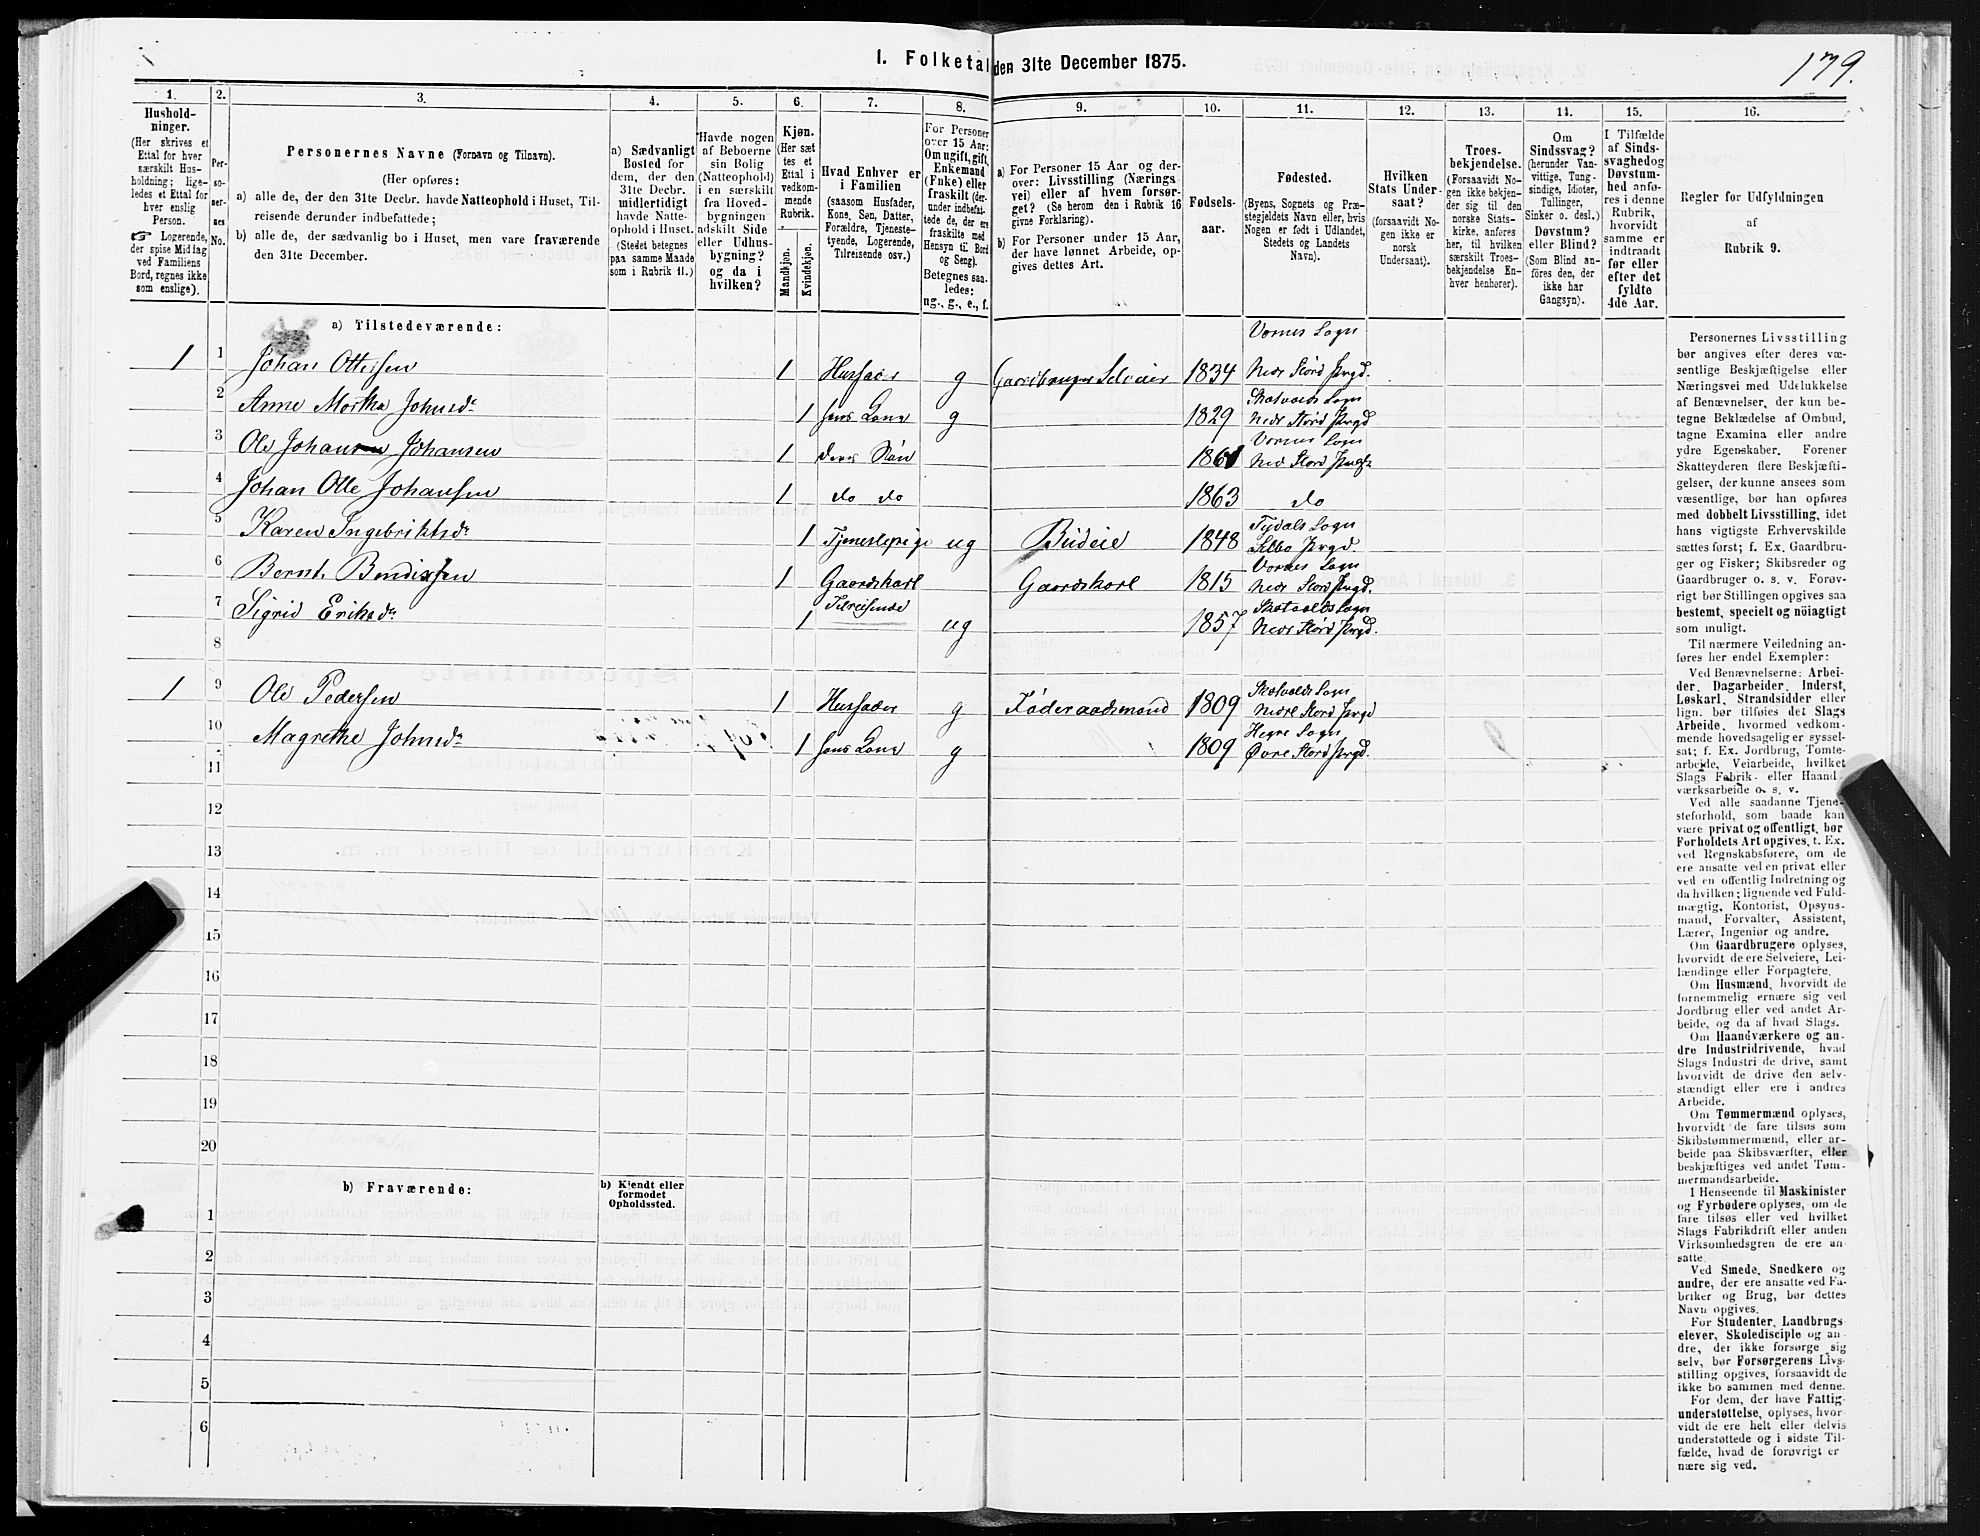 I. Folketal den 31te December 1875.
179.
1.
Hushold-
ninger.
(Her skrives et
Ettal for hver
særskilt Hus-
holdning; lige-
ledes et Ettal for
hver enslig
Person.
☞ Logerende,
der spise Middag
ved Familiens
Bord, regnes ikke
som enslige).
2.
Per-
so-
ner-
nes
No.
3.
Personernes Navne (Fornavn og Tilnavn).
(Her opføres:
a) alle de, der den 31te Decbr. havde Natteophold i Huset, Til-
reisende derunder indbefattede;
b) alle de, der sædvanlig bo i Huset, men vare fraværende
den 31te December.
4.
a) Sædvanligt
Bosted for
dem, der den
31te Decbr.
midlertidigt
havde Natte-
ophold i Huset.
(Stedet betegnes
paa samme Maade
som i Rubrik 11.)
5.
Havde nogen
af Beboerne
sin Bolig
(Natteophold)
i en særskilt
fra Hoved-
bygningen
adskilt Side
eller Udhus-
bygning?
og da i
hvilken?
6.
Kjøn.
(Her sæt-
tes et
Ettal i
vedkom-
mende
Rubrik.
Mandkjøn.
Kvindekjøn.
7.
Hvad Enhver er
i Familien
(saasom Husfader,
Kone, Søn, Datter,
Forældre, Tjeneste-
tyende, Logerende,
Tilreisende osv.)
8.
For Personer
over 15 Aar:
Om ugift, gift,
Enkemand
(Enke) eller
fraskilt (der-
under indbefat-
tede de, der ere
fraskilte med
Hensyn til Bord
og Seng).
Betegnes saa-
ledes:
ug., g., e., f.
9.
a) For Personer 15 Aar og der-
over: Livsstilling (Nærings-
vei) eller af hvem forsør-
get? (Se herom den i Rubrik 16
givne Forklaring).
b) For Personer under 15 Aar,
der have lønnet Arbeide, op-
gives dettes Art.
10.
Fødsels-
aar.
11.
Fødested.
(Byens, Sognets og Præ-
stegjeldets Navn eller, hvis
Nogen er født i Udlandet,
Stedets og Landets
Navn).
12.
Hvilken
Stats Under-
saat?
(forsaavidt No-
gen ikke er
norsk
Undersaat).
13.
Troes-
bekjendelse.
(Forsaavidt No-
gen ikke bekjen-
der sig til den
norske Stats-
kirke, anføres
her, til hvilken
særskilt Troes-
bekjendelse En-
hver henhører).
14.
Om
Sindssvag?
(herunder Van-
vittige, Tung-
sindige, Idioter,
Tullinger,
Sinker o. desl.)
Døvstum?
eller Blind?
(Som Blind an-
føres den, der
ikke har
Gangsyn).
15.
I Tilfælde
af Sinds-
svaghed og
Døvstum-
hed anfø-
res i denne
Rubrik,
hvorvidt
samme er
indtraadt
før eller
efter det
fyldte
4de Aar.
16.
Regler for Udfyldningen
af
Rubrik 9.
a) Tilstedeværende:
1 1 Johan Ottersen 1 Husfader g Gaardbruger Selveier 1834 Vernes Sogn Nedr Størd Prgd.
2 Anne Martha Johnsd. 1 hans Kone g 1829 Skatvolds Sogn Nedr Størd Prgd
3 Ole Johansen Johansen 1 deres Søn 1861 Vernes Sogn Ned Stord Prgd
4 Johan Olle Johansen 1 do do 1863 do
5 Karen Ingebriktsd. 1 Tjenestepige ug Budeie 1848 Tydals Sogn Selbo Prgd.
6 Bernt Bendixsen 1 Gaardskarl Gaardskarl 1815 Vernes Sogn Nedr Stord Prgd.
7 Sigrid Eriksd. 1 Tilreisende ug 1857 Skatvolds Sogn Nedr Størd Prgd.
8
1 9 Ole Pedersen 1 Husfader g Føderaadsmand 1809 Skatvolds Sogn Nedre Stord Prgd
10 Magrethe Johnsd. 1 hans Kone g 1809 Hegre Sogn Øvre Stord Prgd.
11
12
13
14
15
16
17
18
19
20
b) Fraværende:
b) Kjendt eller
formodet
Opholdssted.
1
2
3
4
5
6
Personernes Livsstilling
bør angives efter deres væ-
sentlige Beskjæftigelse eller
Næringsvei med Udelukkelse
af Benævnelser, der kun be-
tegne Beklædelse af Ombud,
tagne Examina eller andre
ydre Egenskaber. Forener
Skatteyderen flere Beskjæfti-
gelser, der kunne ansees som
væsentlige, bør han opføres
med dobbelt Livsstilling, idet
hans vigtigste Erhvervskilde
sættes først; f. Ex. Gaardbru-
ger og Fisker; Skibsreder og
Gaardbruger o. s. v. Forøv-
rigt bør Stillingen opgives saa
bestemt, specielt og nöiagtigt
som muligt.
Til nærmere Veiledning an-
føres her endel Exempler:
Ved Benævnelserne: Arbei-
der, Dagarbeider, Inderst,
Løskarl, Strandsidder eller
lign. bør tilføies det Slags
Arbeide, hvormed vedkom-
mende hovedsagelig er syssel-
sat; f. Ex. Jordbrug, Tomte-
arbeide, Veiarbeide, hvilket
Slags Fabrik- eller Haand-
værksarbeide o. s. v.
Ved alle saadanne Tjene-
steforhold, som baade kan
være privat og offentligt, bør
Forholdets Art opgives, t. Ex.
ved Regnskabsførere, om de
ere ansatte ved en privat eller
ved en offentlig Indretning og
da hvilken; lignende ved Fuld-
mægtig, Kontorist, Opsyns-
mand, Forvalter, Assistent,
Lærer, Ingeniør og andre.
Om Gaardbrugere oplyses,
hvorvidt de ere Selveiere, Lei-
lændinge eller Forpagtere.
Om Husmænd, hvorvidt de
fornemmelig ernære sig ved
Jordbrug eller ved andet Ar-
beide, og da af hvad Slags.
Om Haandværkere og an-
dre Industridrivende, hvad
Slags Industri de drive, samt
hvorvidt de drive den selv-
stændigt eller ere i andres
Arbeide.
Om Tømmermænd oplyses,
hvorvidt de fare tilsøs som
Skibstømmermænd, eller ar-
beide paa Skibsværfter, eller
beskjæftiges ved andet Tøm-
mermandsarbeide.
I Henseende til Maskinister
og Fyrbødere oplyses, om de
fare tilsøs eller ved hvilket
Slags Fabrikdrift eller anden
Virksomhedsgren de ere an-
satte.
Ved Smede, Snedkere og
andre, der ere ansatte ved Fa-
briker og Brug, bør dettes
Navn opgives.
For Studenter, Landbrugs-
elever, Skoledisciple og an-
dre, der ikke forsørge sig
selv, bør Forsørgerens Livs-
stilling opgives, forsaavidt de
ikke bo sammen med denne.
For dem, der have Fattig-
understøttelse, oplyses, hvor-
vidt de ere helt eller delvis
understøttede og i sidste Til-
fælde, hvad de forøvrigt er-
nære sig ved.